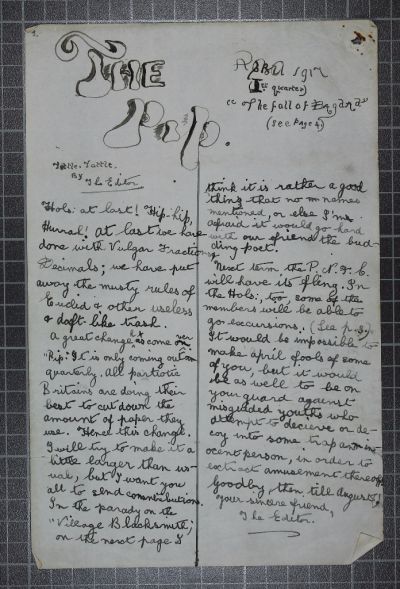 1.
THE
Pip.
April 1917
(1st quarter)
"of the fall of Bagdad"
(see Page 4)
Tittle. Tattle.
By
The Editor
Hols: at last! Hip-hip,
Hurrah! At last we have
done with Vulgar Fractions
Decimals; we have put
away the musty rules of
Euclid & other useless
& daft-like trash.
A great change has come over
"Rip: It is only coming out
quarterly. All patriotic
Britains are doing their
best to cut down the
amount of paper they
use. Hence this change.
I will try to make it a
little larger than us-
ual, but I want you
all to send contributions.
In the parody on the
"Village Blacksmith,"
on the next page I
think it is rather a good
thing that no names
mentioned, or else I'm
afraid it would go hard
with our friend the bud-
ding poet.
Next term the P. N. & C.
will have its fling. In
the Hols: too some of the
members will be able to
go excursions. (See p. 3).
It would be impossible to
make april fools of some
of you, but it would
be as well to be on
your guard against
misguided youths who
attempt to decieve or de-
coy into some trap an inn-
ocent person, in order to
extract amusement thereof
Goodby, then, till august!
Your sincere friend,
The Editor.